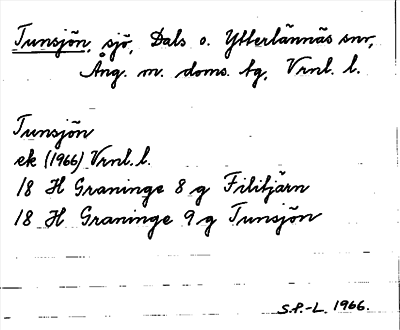 Tunsjön, sjö, Dals o. Ytterlännäs snr,
Ång. m. doms. tg, Vrnl. l.
Tunsjön
ek (1966) Vrnl. l.
18 H Graninge 8 g Filitjärn
18 H Graninge 9 g Tunsjön
S.P.-L. 1966.